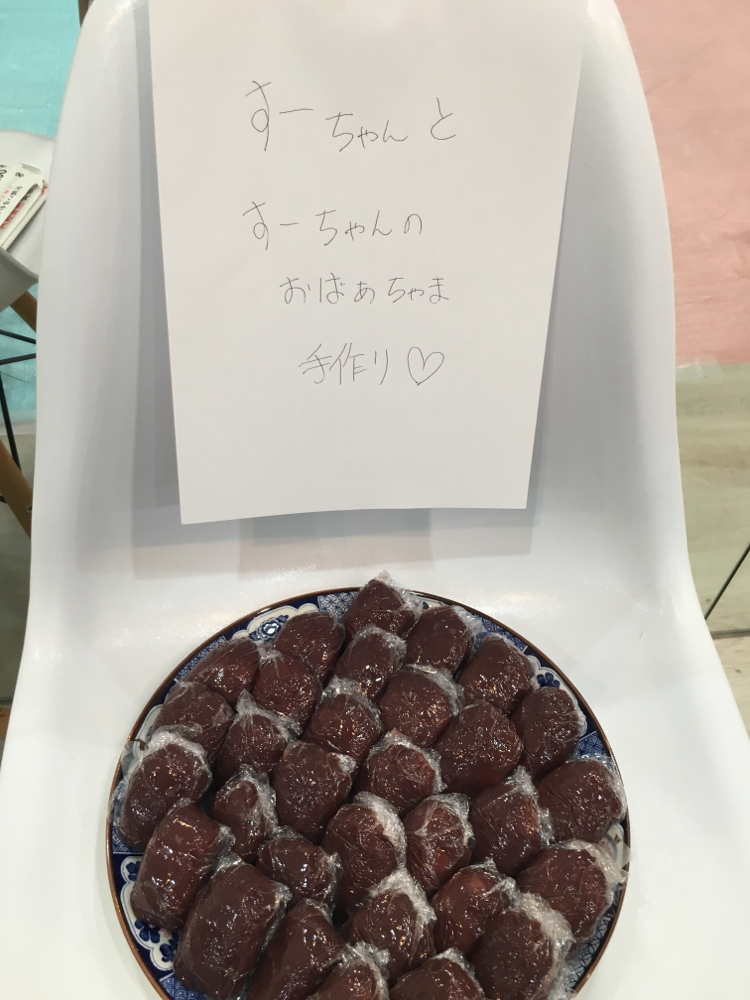 すーちゃんと
すーちゃんの
おばぁちゃま
手作り♡